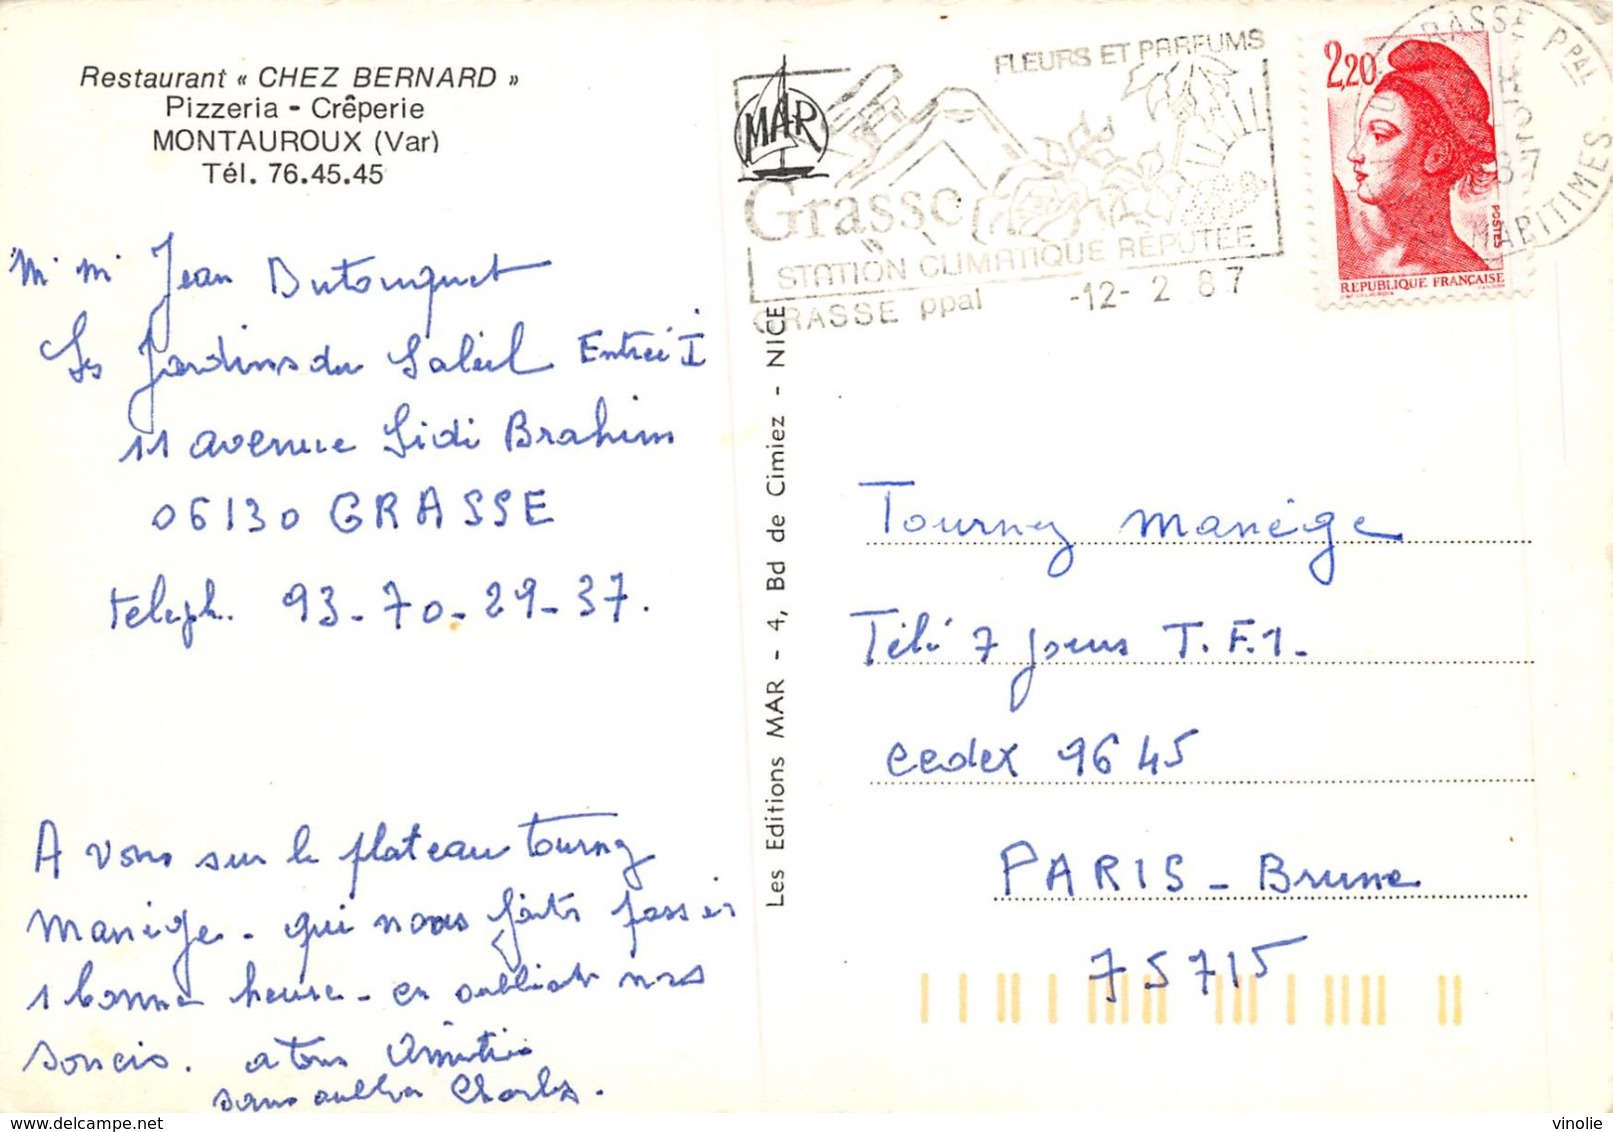 Restaurant « CHEZ BERNARD »
Pizzeria - Crêperie
MONTAUROUX (Var)
Tél. 76.45.45
Mr Mr Jean Dutouquet
Les Jardins du Soleil Entrée I
11 avenue Sidi Brahim
06130 GRASSE
teleph. 93-70-29-37.
A vous sur le plateau Tournez
Manège - qui nous faites passer
1 bonne heure - en oubliant nos
soucis. a tous Amitiés
sans oublier Charles.
MAR
Les Editions MAR - 4, Bd de Cimiez - NICE
FLEURS ET PARFUMS
Grasse
STATION CLIMATIQUE RÉPUTÉE
GRASSE ppal -12- 2 87
GRASSE Ppal
MARITIMES
2,20
POSTES
REPUBLIQUE FRANÇAISE
Tournez Manège
Télé 7 jours T.F.1-
cedex 9645
PARIS - Brune
75715
vinolie